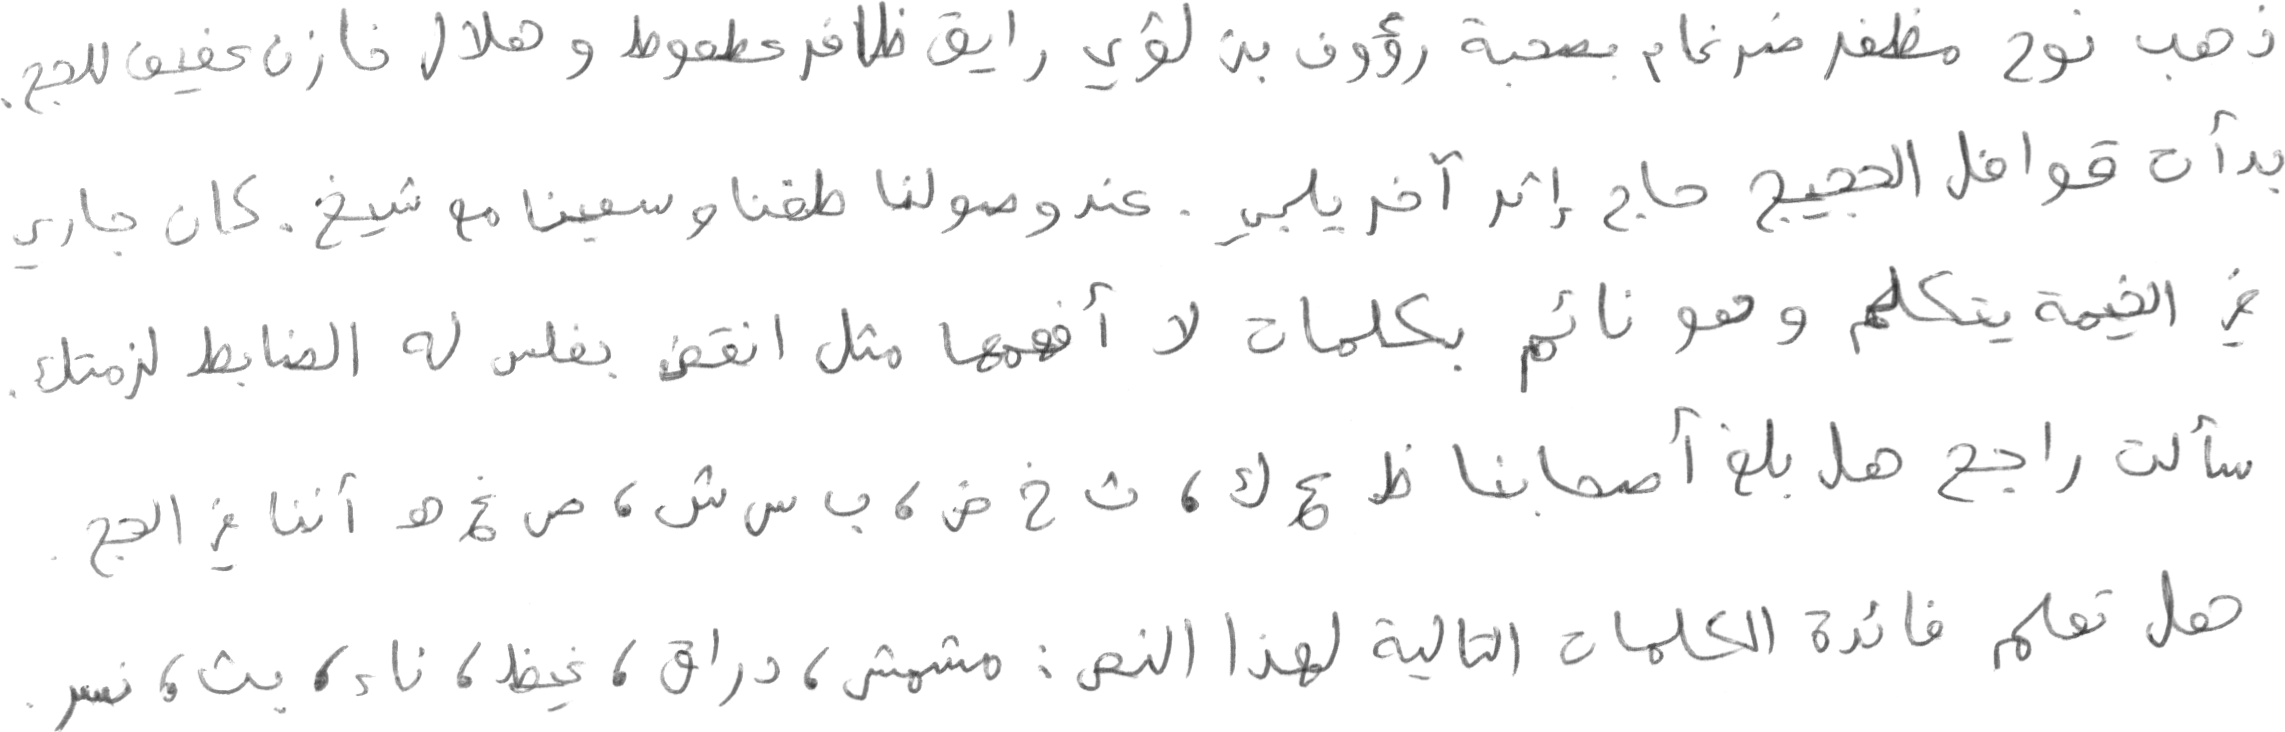 ذهب نوح مظفر ضرغام بصحبة رؤوف بن لؤي رايق ظافر عطعوط و هلال خازن عفيف للحج.
بدأت قوافل الحجيج حاج إثر آخر يلبي. عند وصولنا طفنا و سعينا مع شيخ. كان جاري
في الخيمة يتكلم و هو نائم بكلمات لا أفهمها مثل انقض بفلس له الضابط لزمتك.
سألت راجح هل بلغ أصحابنا ظ ع ك، ث خ ض، ب س ش، ص غ ه أننا في الحج.
هل تعلم فائدة الكلمات التالية لهذا النص: مشمش، دراق، غيظ، ناء، بث، نسر.